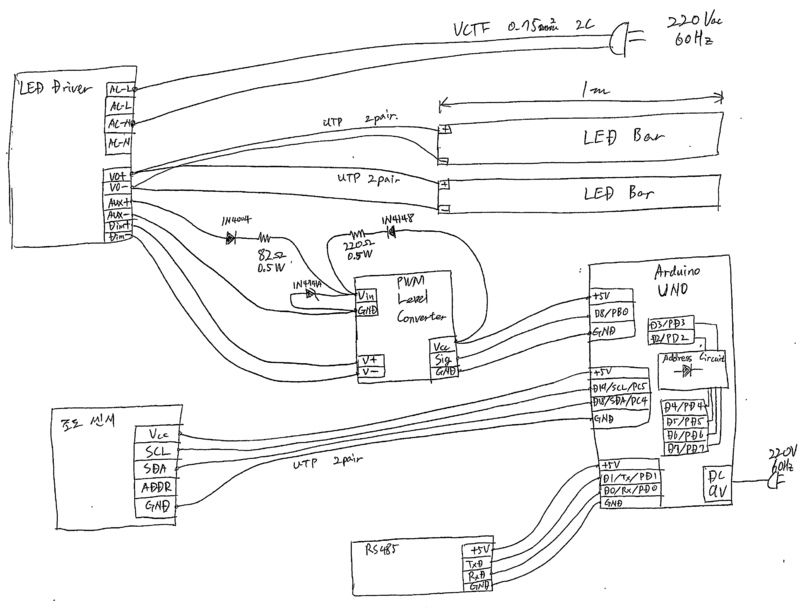 VCTF 0.75mm² 2C
220Vac
60Hz
LED Driver
AC-L
AC-L
AC-N
AC-N
VO+
VO-
Aux+
Aux-
Dim+
Dim-
1m
UTP 2pair
+
-
LED Bar
UTP 2pair
+
-
LED Bar
1N4004
82Ω
0.5W
1N4148
220Ω
0.5W
Vin
GND
PWM
Level
Converter
Vcc
Sig
GND
V+
V-
Arduino
UNO
+5V
D8/PB0
GND
D3/PD3
D2/PD2
Address Circuit
+5V
D19/SCL/PC5
D18/SDA/PC4
GND
D4/PD4
D5/PD5
D6/PD6
D7/PD7
+5V
D1/Tx/PD1
D0/Rx/PD0
GND
DC
9V
220V
60Hz
조도 센서
Vcc
SCL
SDA
ADDR
GND
UTP 2pair
RS485
+5V
TxD
RxD
GND